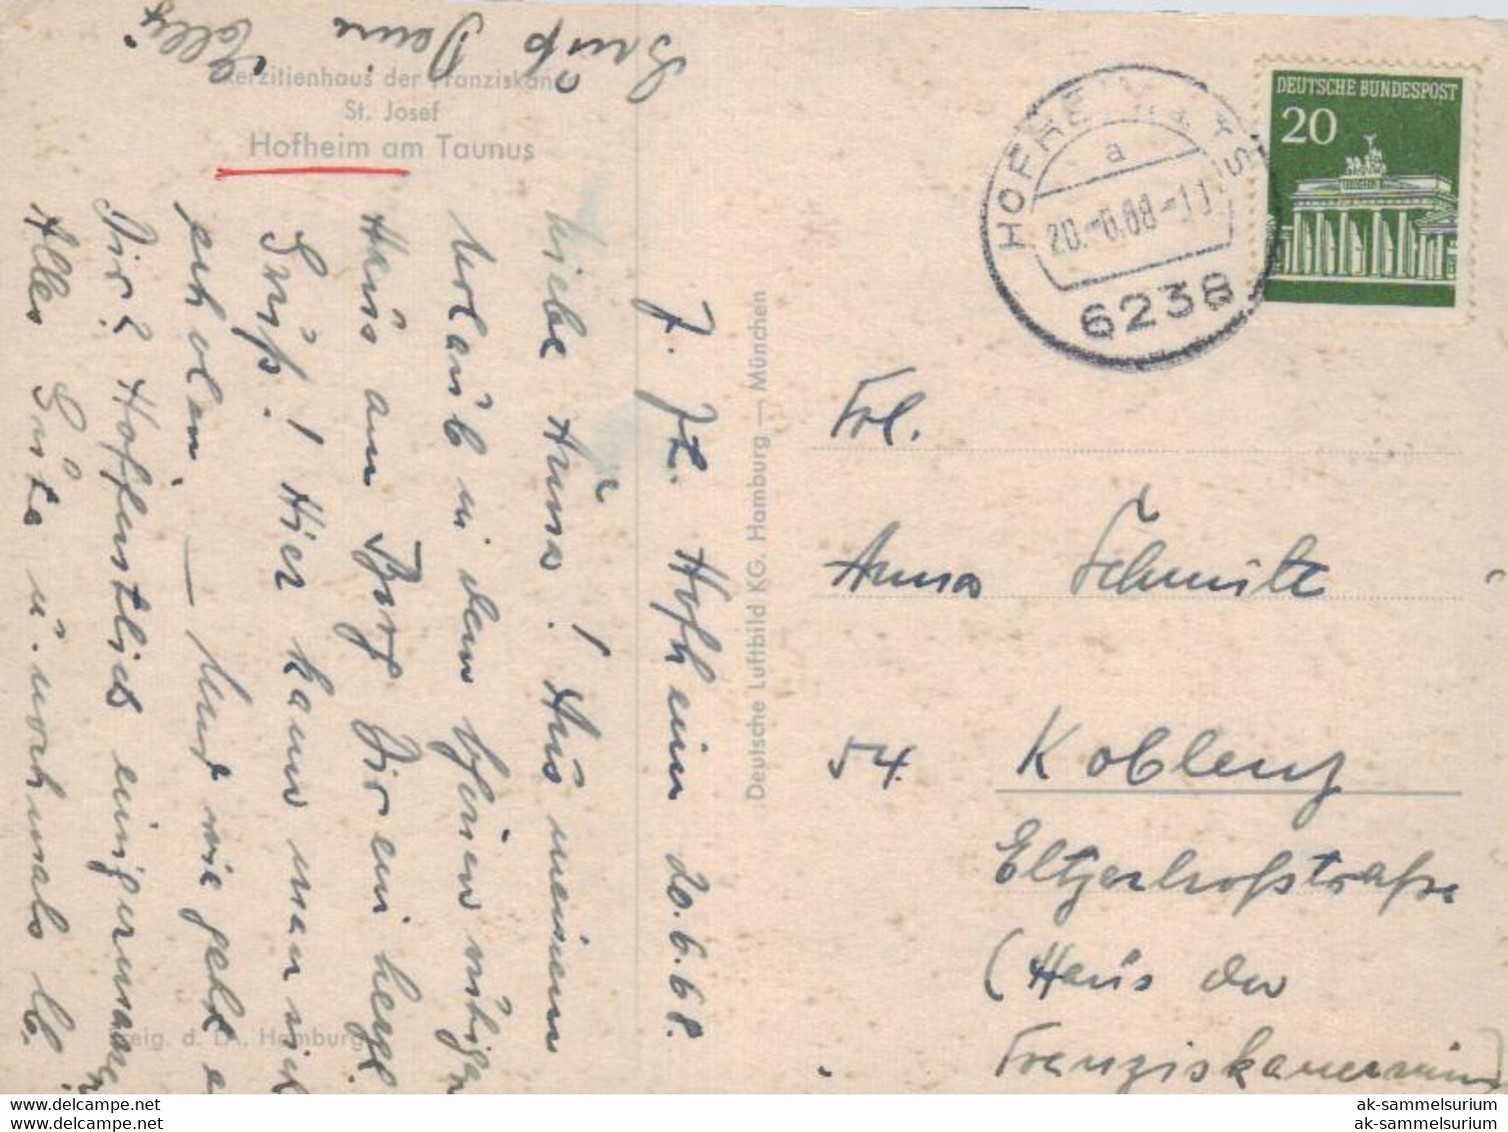 Exerzitienhaus der Franziskaner
St. Josef
Hofheim am Taunus
z. Zt. Hofheim 20.6.68.
Liebe Anna! Aus meinem
Urlaub in dem schönen ruhigen
Haus am Berg Dir ein herzl.
Gruß! Hier kann man sich
erholen. — Und wie geht es
Dir? Hoffentlich einigermaßen
Alles Gute u. nochmals lb.
Gruß Deine
Deutsche Luftbild KG. Hamburg — München
Freig. d. LA. Hamburg
HOFHEIM, TS
a
20.-6.68-11
6238
DEUTSCHE BUNDESPOST
20
Frl.
Anna Schmitz
54. Koblenz
Eltzerhofstraße
(Haus der
Franziskanerinnen)
ak-sammelsurium
ak-sammelsurium
ak-sammelsurium
ak-sammelsurium